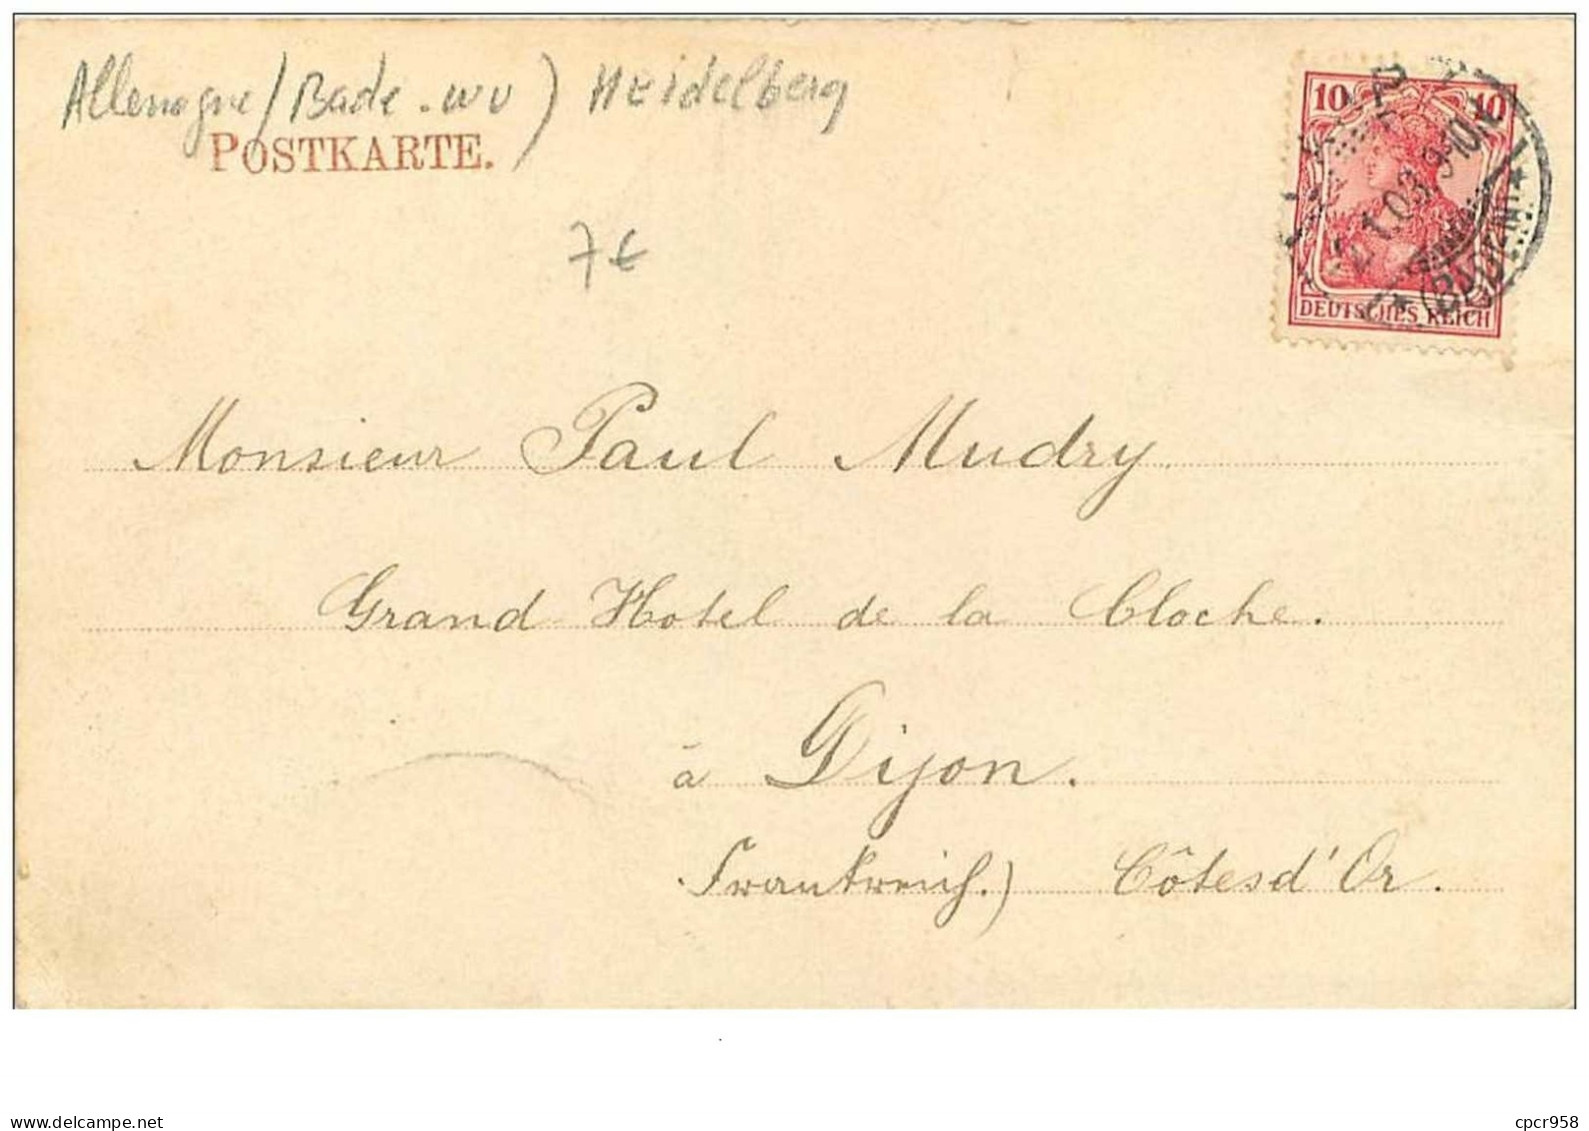 Allemagne / Bade - wu ) Heidelberg
POSTKARTE.
7 €
10 10
1.03. 9-10
(BADEN)
DEUTSCHES REICH
Monsieur Paul Mudry
Grand Hotel de la Cloche.
à Dijon.
Frankreich.) Côtes d'Or.
www.delcampe.net
cpcr958